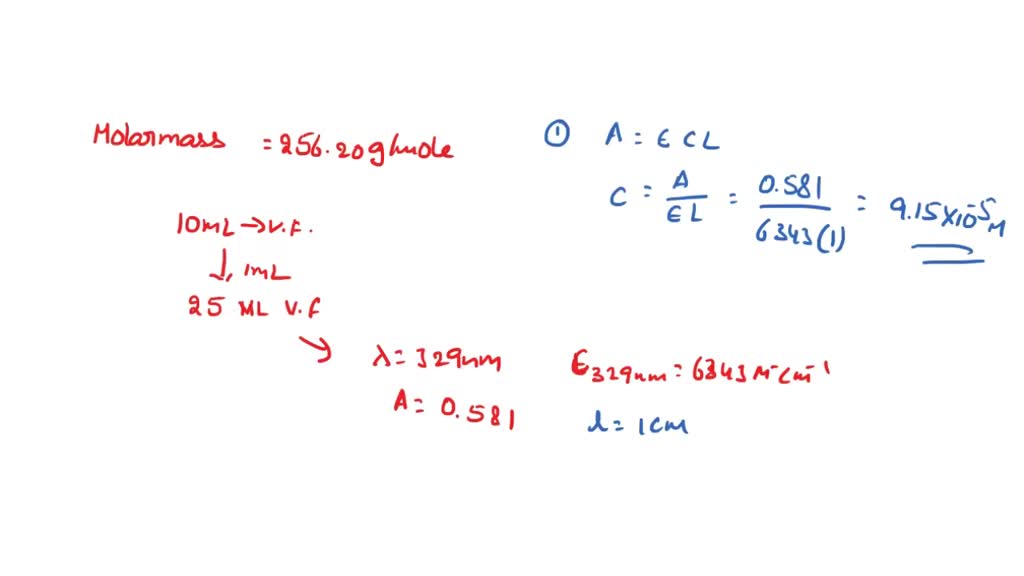 Molarmass = 256.20 g/mole
10mL → V.F.
↓, 1mL
25 ML V.f
λ = 329nm
A = 0.581
ε329nm = 6343 M⁻cm⁻¹
l = 1cm
① A = ε C L
C = A / ε L = 0.581 / 6343(1) = 9.15×10⁻⁵ M